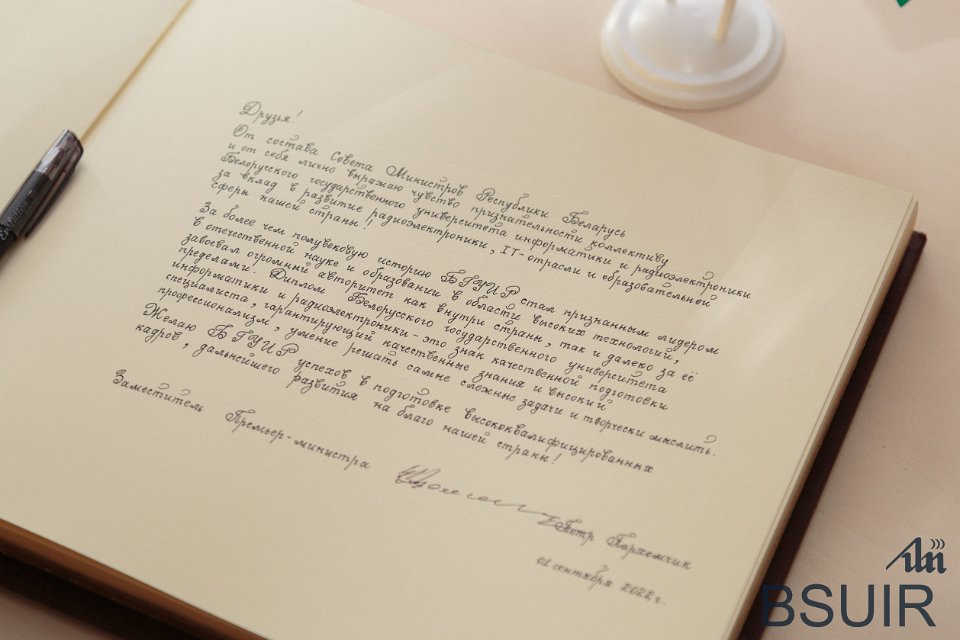 Друзья!
От состава Совета Министров Республики Беларусь
и от себя лично выражаю чувство признательности коллективу
Белорусского государственного университета информатики и радиоэлектроники
за вклад в развитие радиоэлектроники, IT-отрасли и образовательной
сферы нашей страны!
За более чем полувековую историю БГУИР стал признанным лидером
в отечественной науке и образовании в области высоких технологий,
завоевал огромный авторитет как внутри страны, так и далеко за её
пределами. Диплом Белорусского государственного университета
информатики и радиоэлектроники - это знак качественной подготовки
специалиста, гарантирующий качественные знания и высокий
профессионализм, умение решать самые сложные задачи и творчески мыслить.
Желаю БГУИР успехов в подготовке высококвалифицированных
кадров, дальнейшего развития на благо нашей страны!
Заместитель Премьер-министра
Петр Пархомчик
01 сентября 2022 г.
BSUIR